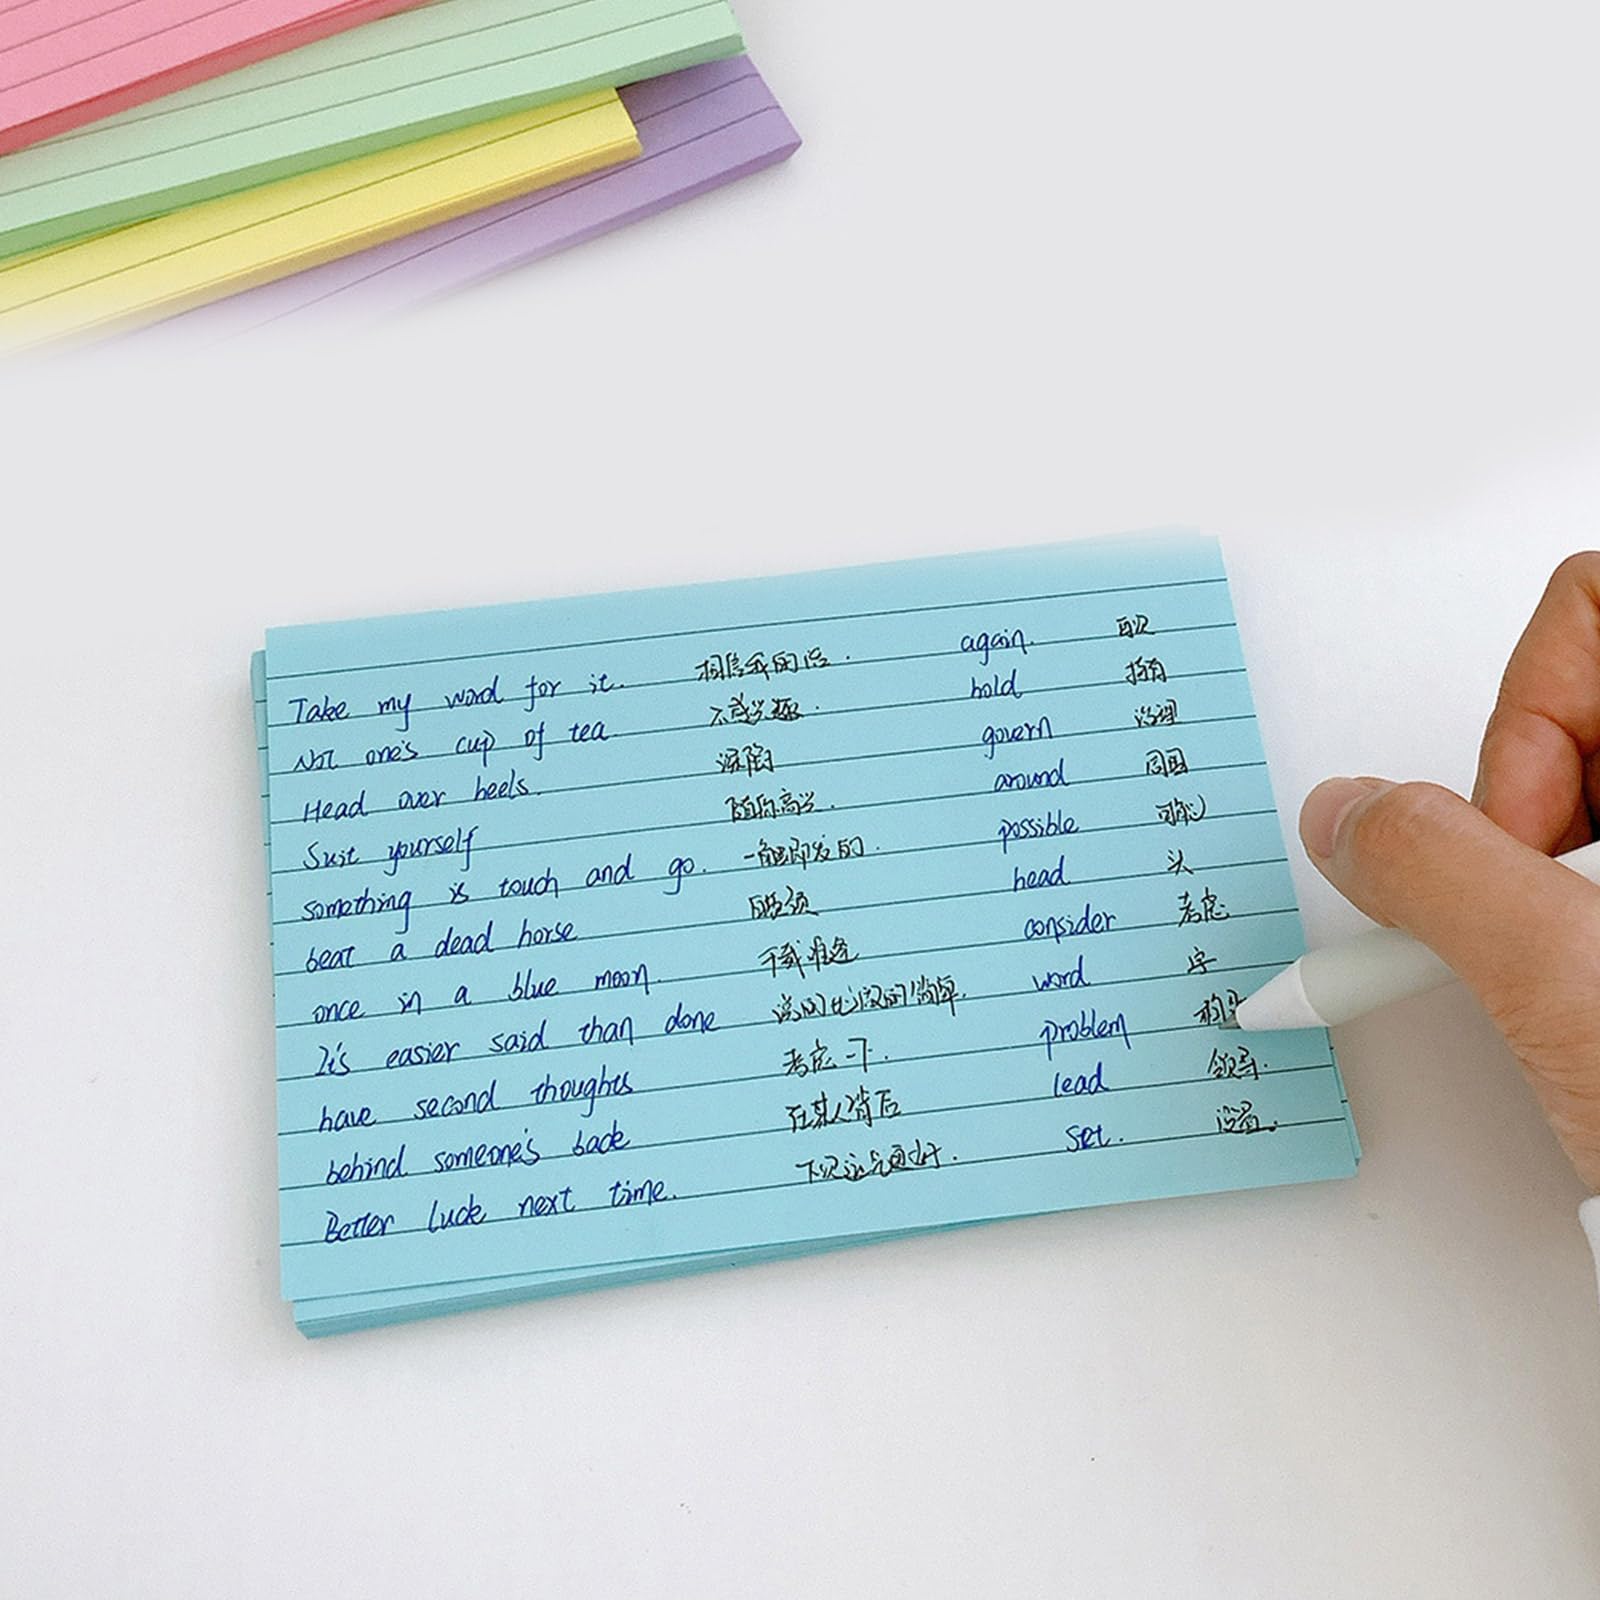 Take my word for it. 相信我的话. again. 再次
Not one's cup of tea 不感兴趣. hold 拥有
Head over heels. 深陷 govern 治理
Suit yourself 随你高兴. around 周围
something is touch and go. 一触即发的. possible 可能
beat a dead horse head 头
once in a blue moon. 千载难逢 consider 考虑
It's easier said than done 说的比做的简单. word 字
have second thoughts 考虑一下. problem
behind someone's back 在某人背后 lead 领导.
Better luck next time. 下次运气更好. set. 设置.